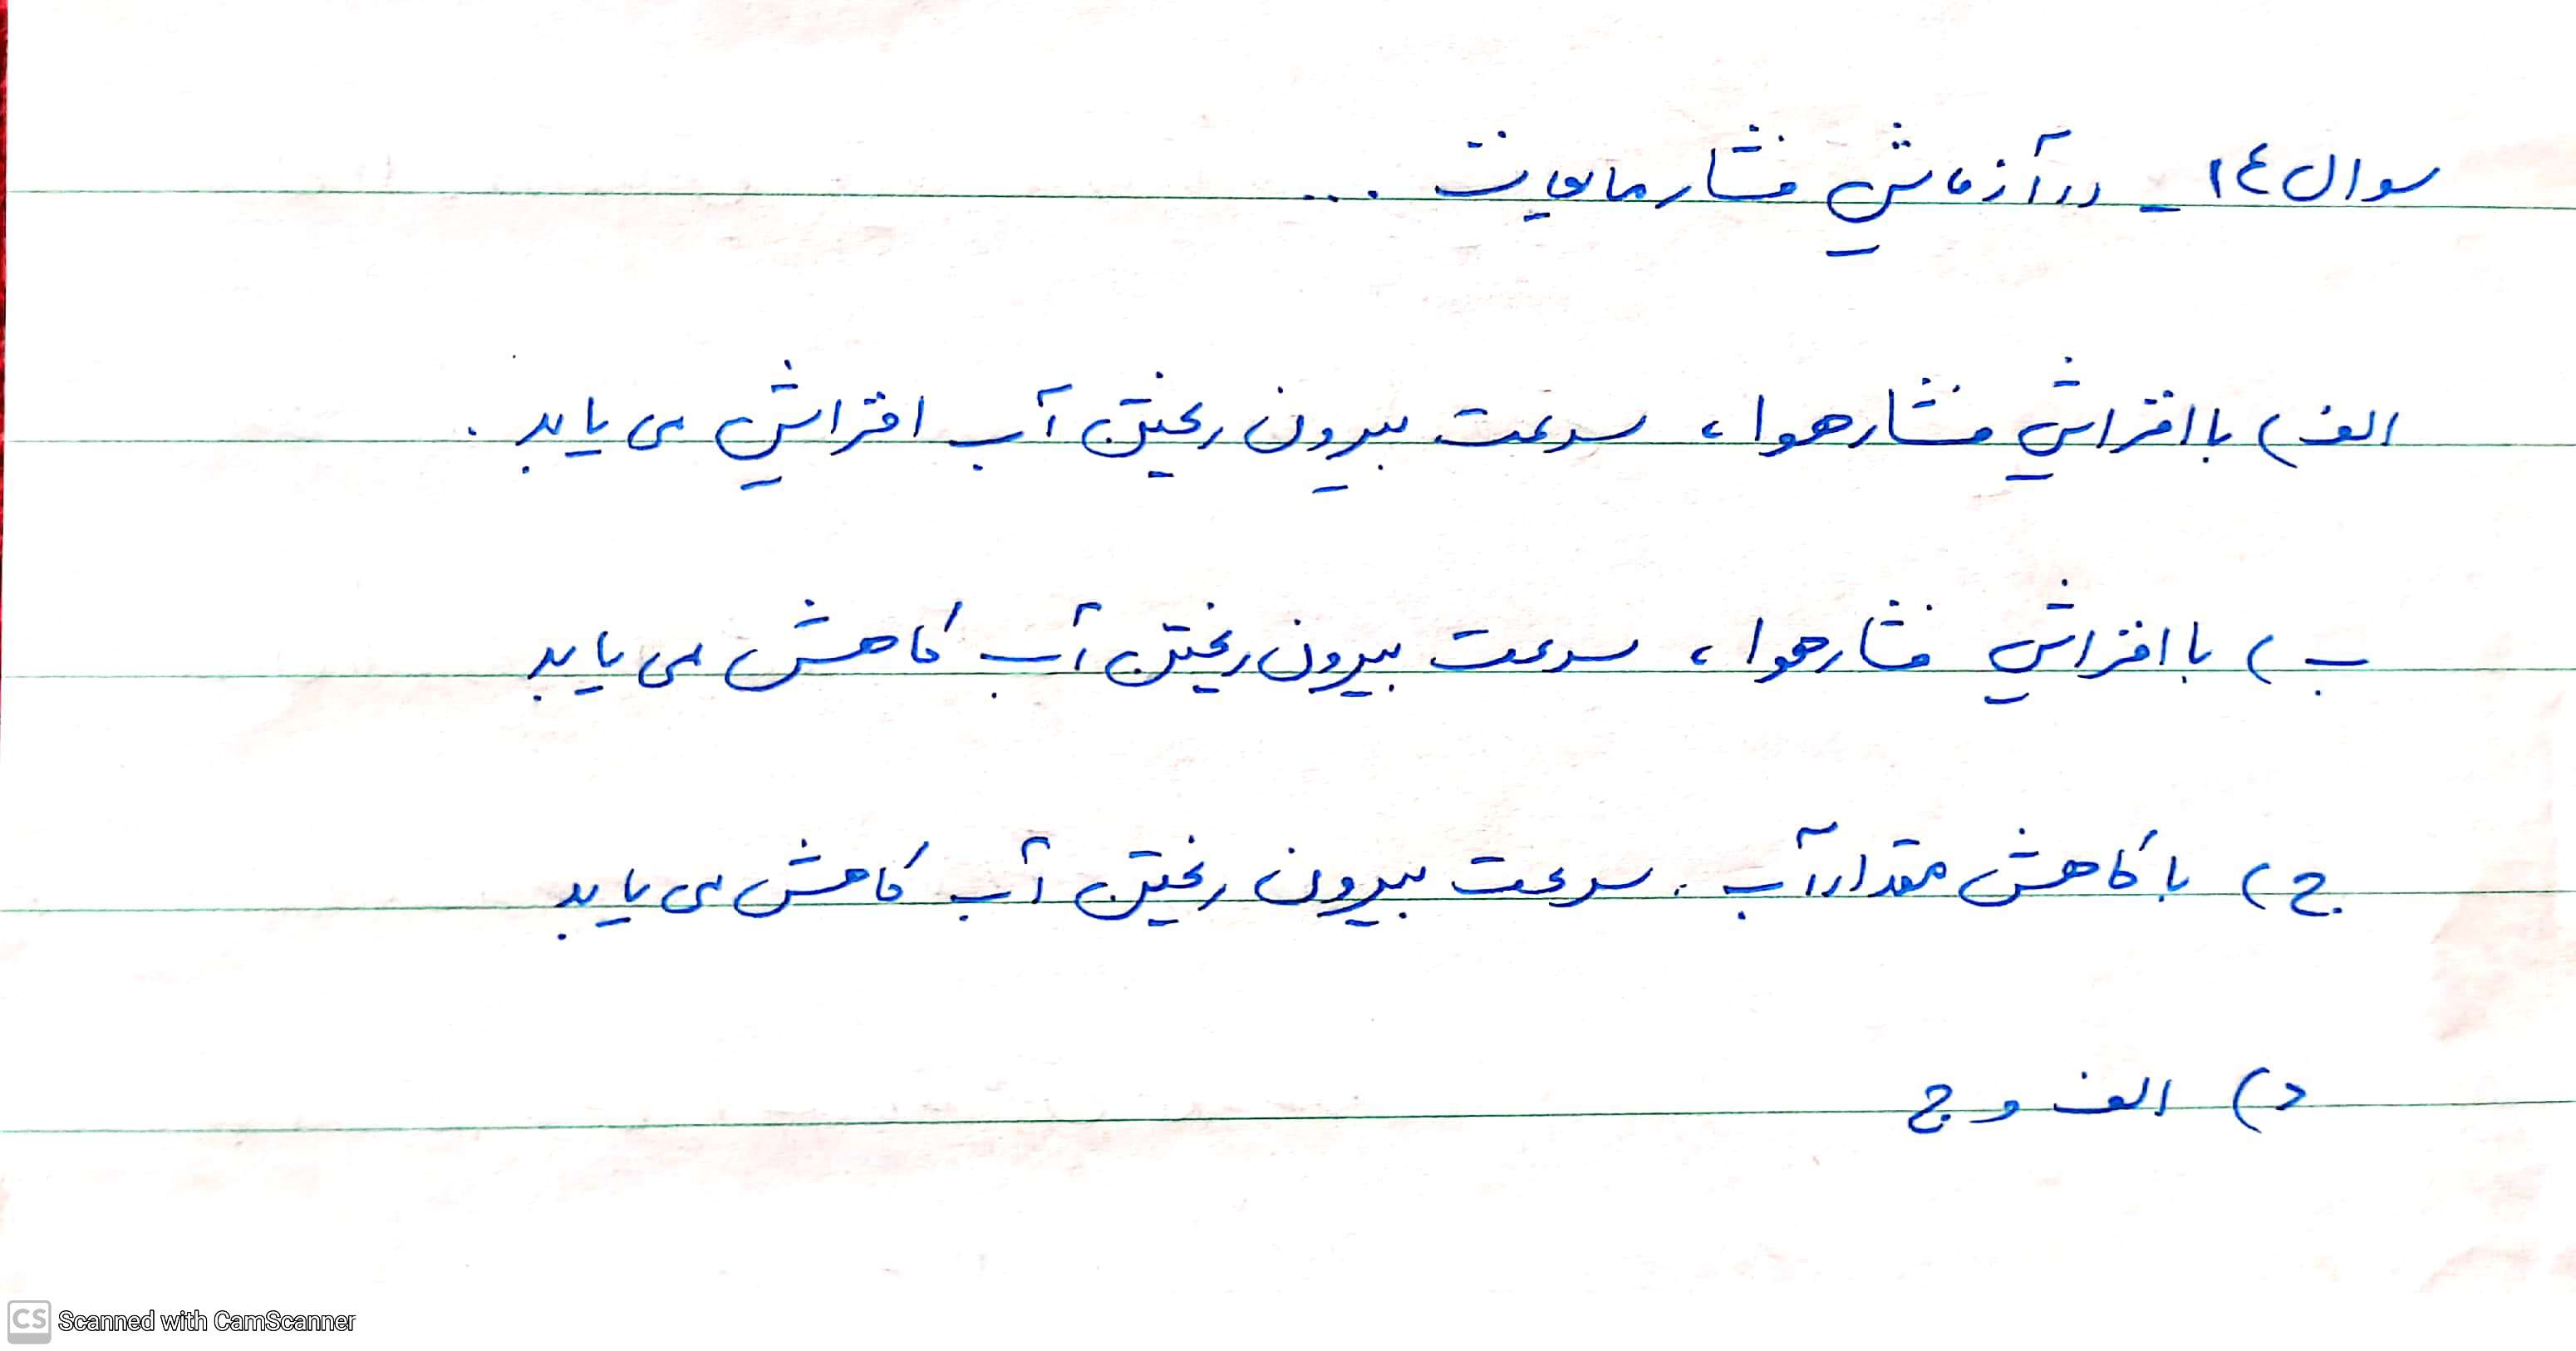 سوال ۱٤ - در آزمایش فشار مایعات ...
الف) با افزایش فشار هوا، سرعت بیرون ریختن آب افزایش می یابد.
ب) با افزایش فشار هوا، سرعت بیرون ریختن آب کاهش می یابد
ج) با کاهش مقدار آب، سرعت بیرون ریختن آب کاهش می یابد
د) الف و ج
CS Scanned with CamScanner